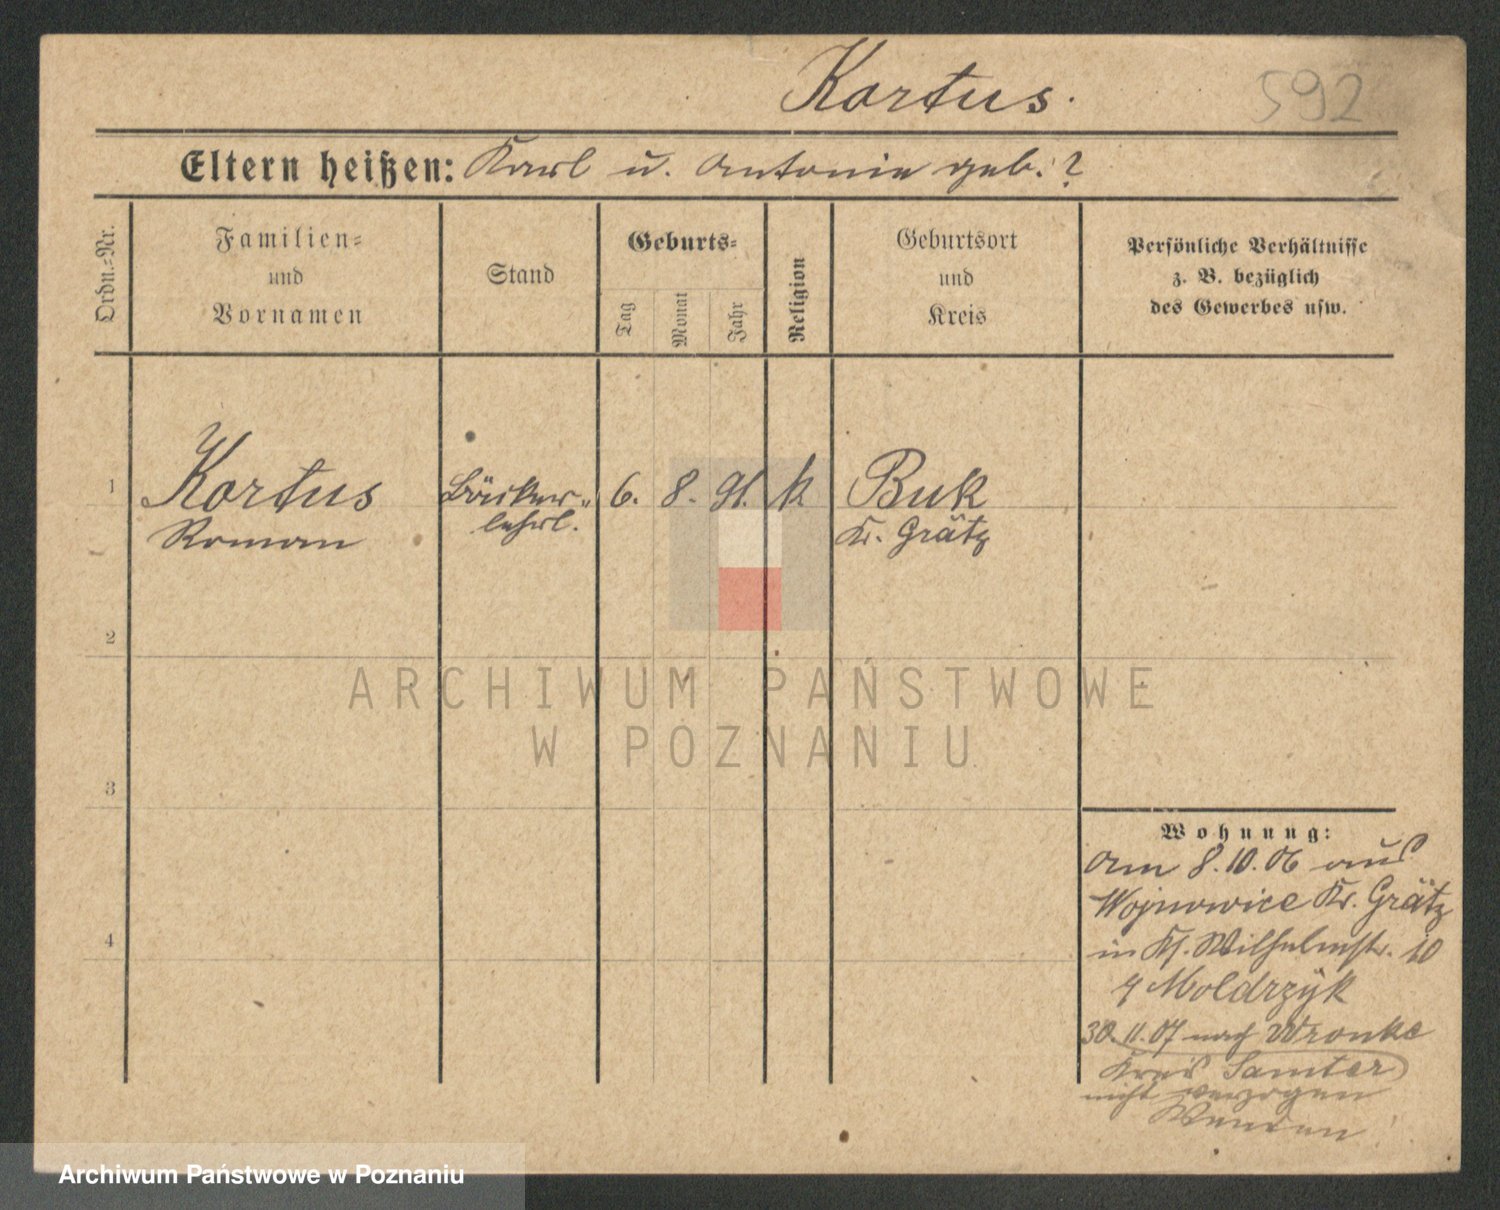 Kortus.
592
Eltern heißen: Karl u. Antonie geb. ?
Ordn.-Nr.
Familien-
und
Vornamen
Stand
Geburts-
Tag
Monat
Jahr
Religion
Geburtsort
und
Kreis
Persönliche Verhältnisse
z. B. bezüglich
des Gewerbes usw.
1
Kortus
Roman
Bäcker-
lehrl.
6.
8.
91.
k
Buk
Kr. Grätz
2
3
4
Wohnung:
Am 8.10.06 aus
Wojnowice Kr. Grätz
in Kl. Wilhelmstr. 10
Moldrzyk
30.11.07 nach Wronke
Kreis Samter
nicht verzogen
Wenden!
ARCHIWUM PAŃSTWOWE
W POZNANIU
Archiwum Państwowe w Poznaniu